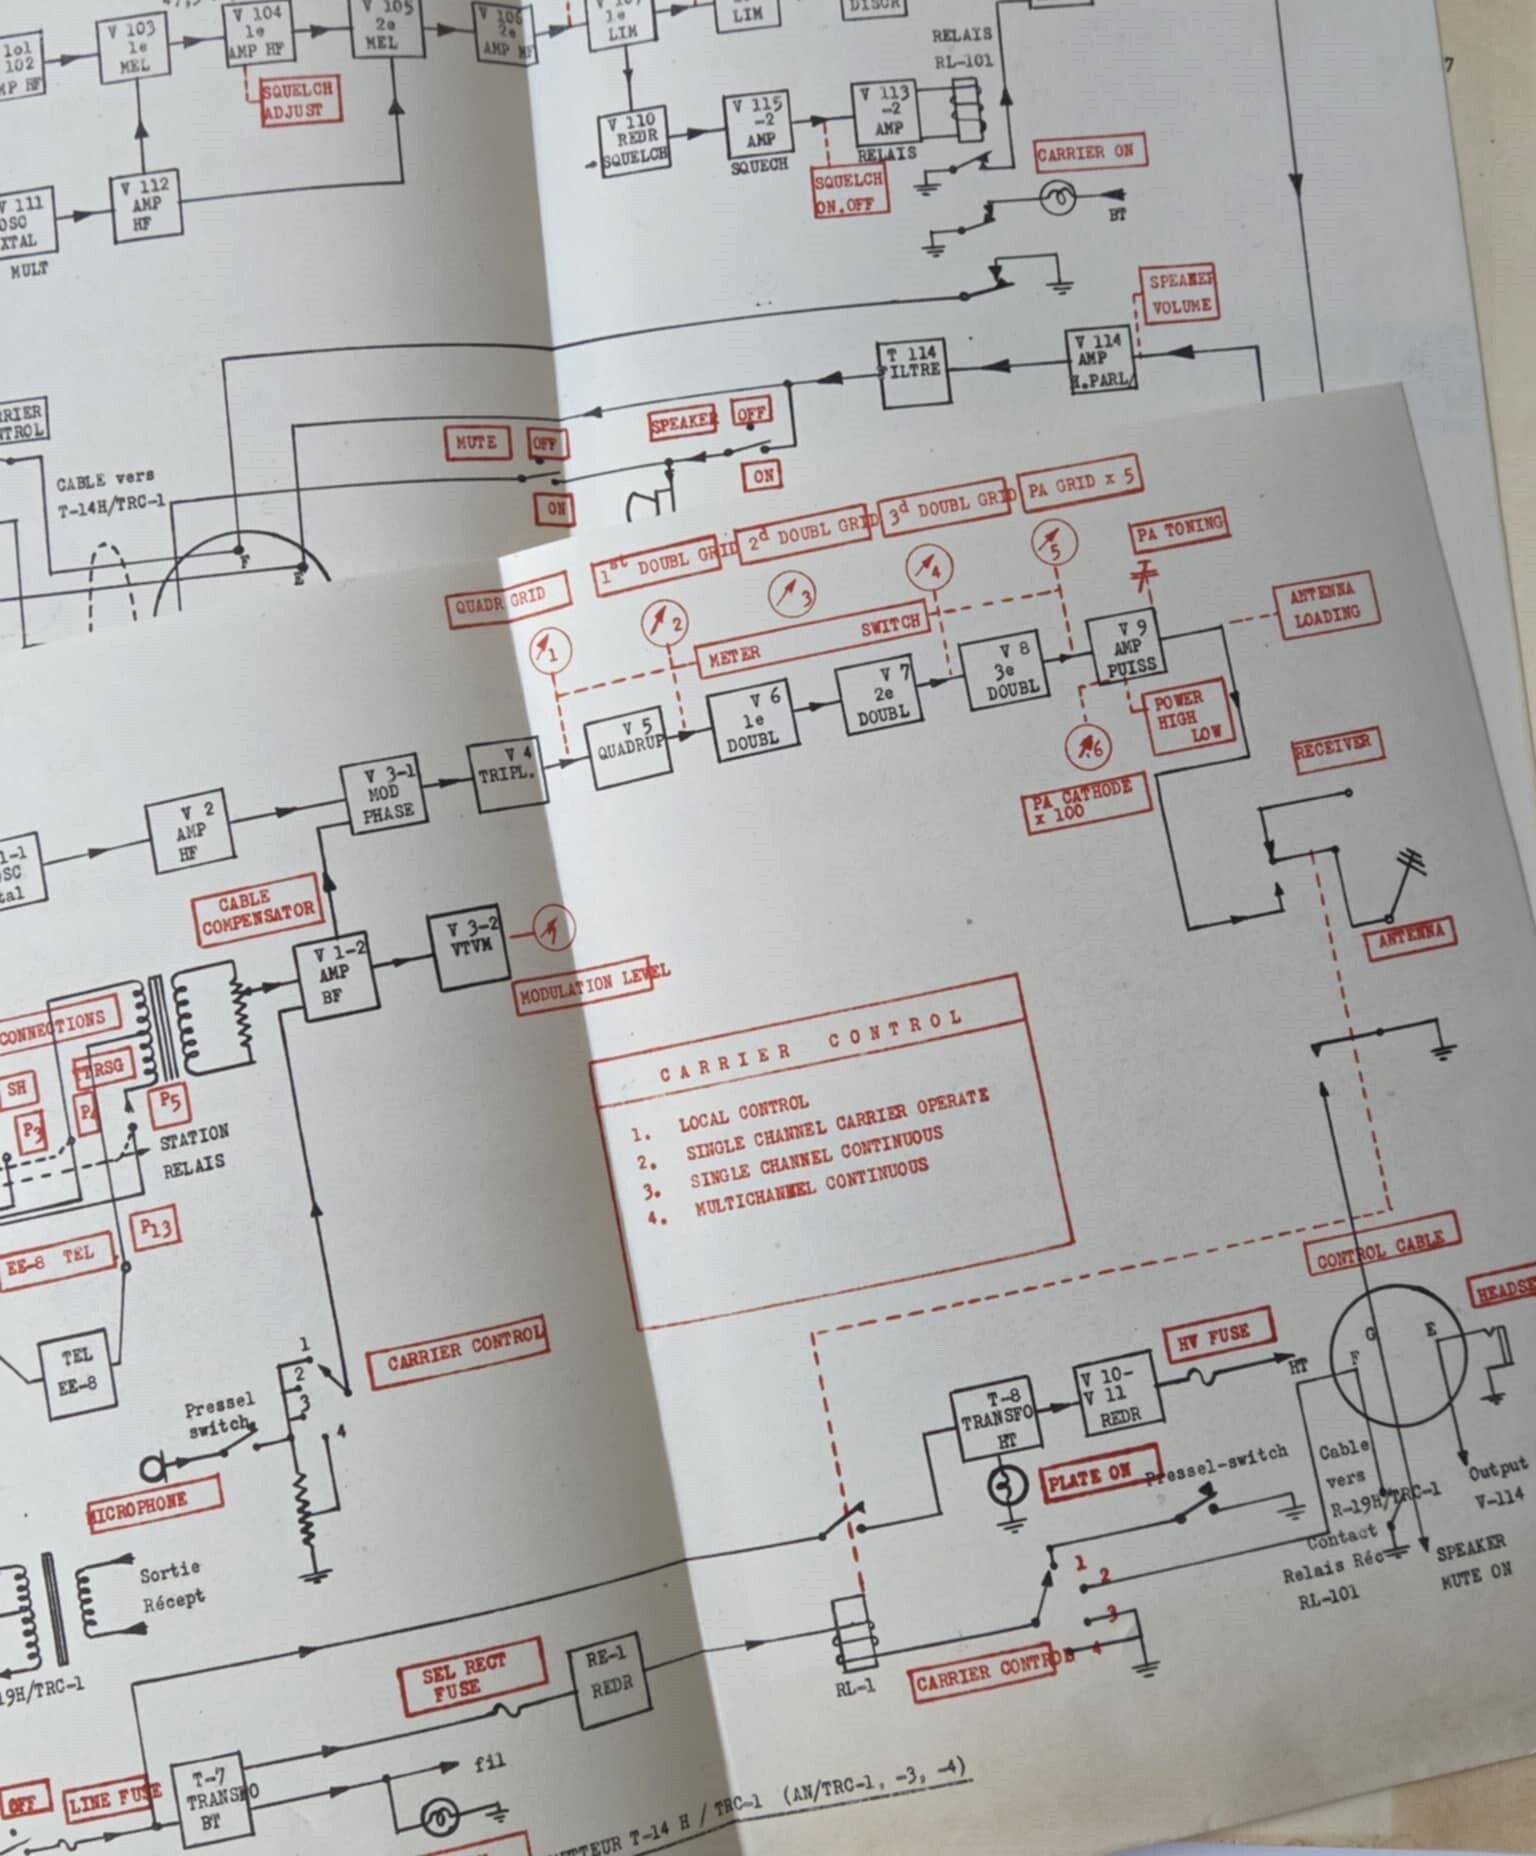 V 103
1e
MEL
V 104
1e
AMP HF
V 105
2e
MEL
V 106
2e
AMP MF
1e
LIM
LIM
DISCR
RELAIS
RL-101
SQUELCH
ADJUST
V 110
REDR
SQUELCH
V 115
-2
AMP
SQUECH
V 113
-2
AMP
RELAIS
CARRIER ON
SQUELCH
ON.OFF
BT
V 111
OSC
XTAL
MULT
V 112
AMP
HF
SPEAKER
VOLUME
T 114
FILTRE
V 114
AMP
H.PARL
SPEAKER
OFF
ON
MUTE
OFF
ON
CABLE vers
T-14H/TRC-1
F
E
7
QUADR GRID
1st DOUBL GRID
2d DOUBL GRID
3d DOUBL GRID
PA GRID x 5
PA TONING
1
2
3
4
5
METER SWITCH
ANTENNA
LOADING
V 2
AMP
HF
V 3-1
MOD
PHASE
V 4
TRIPL.
V 5
QUADRUP
V 6
1e
DOUBL
V 7
2e
DOUBL
V 8
3e
DOUBL
V 9
AMP
PUISS
POWER
HIGH
LOW
6
PA CATHODE
x 100
RECEIVER
ANTENNA
CABLE
COMPENSATOR
V 1-2
AMP
BF
V 3-2
VTVM
MODULATION LEVEL
CONNECTIONS
SH
TRSG
P3
P4
P5
STATION
RELAIS
P13
EE-8 TEL
TEL
EE-8
CARRIER CONTROL
1. LOCAL CONTROL
2. SINGLE CHANNEL CARRIER OPERATE
3. SINGLE CHANNEL CONTINUOUS
4. MULTICHANNEL CONTINUOUS
CONTROL CABLE
CARRIER CONTROL
1
2
3
4
Pressel
switch
MICROPHONE
HV FUSE
HT
G
F
E
T-8
TRANSFO
HT
V 10-
V 11
REDR
PLATE ON
Pressel-switch
Cable
vers
R-19H/TRC-1
Contact
Relais Réc
RL-101
Output
V-114
SPEAKER
MUTE ON
1
2
3
4
CARRIER CONTROL
RL-1
Sortie
Récept
19H/TRC-1
SEL RECT
FUSE
RE-1
REDR
OFF
LINE FUSE
T-7
TRANSFO
BT
fil
T-14 H / TRC-1 (AN/TRC-1, -3, -4)